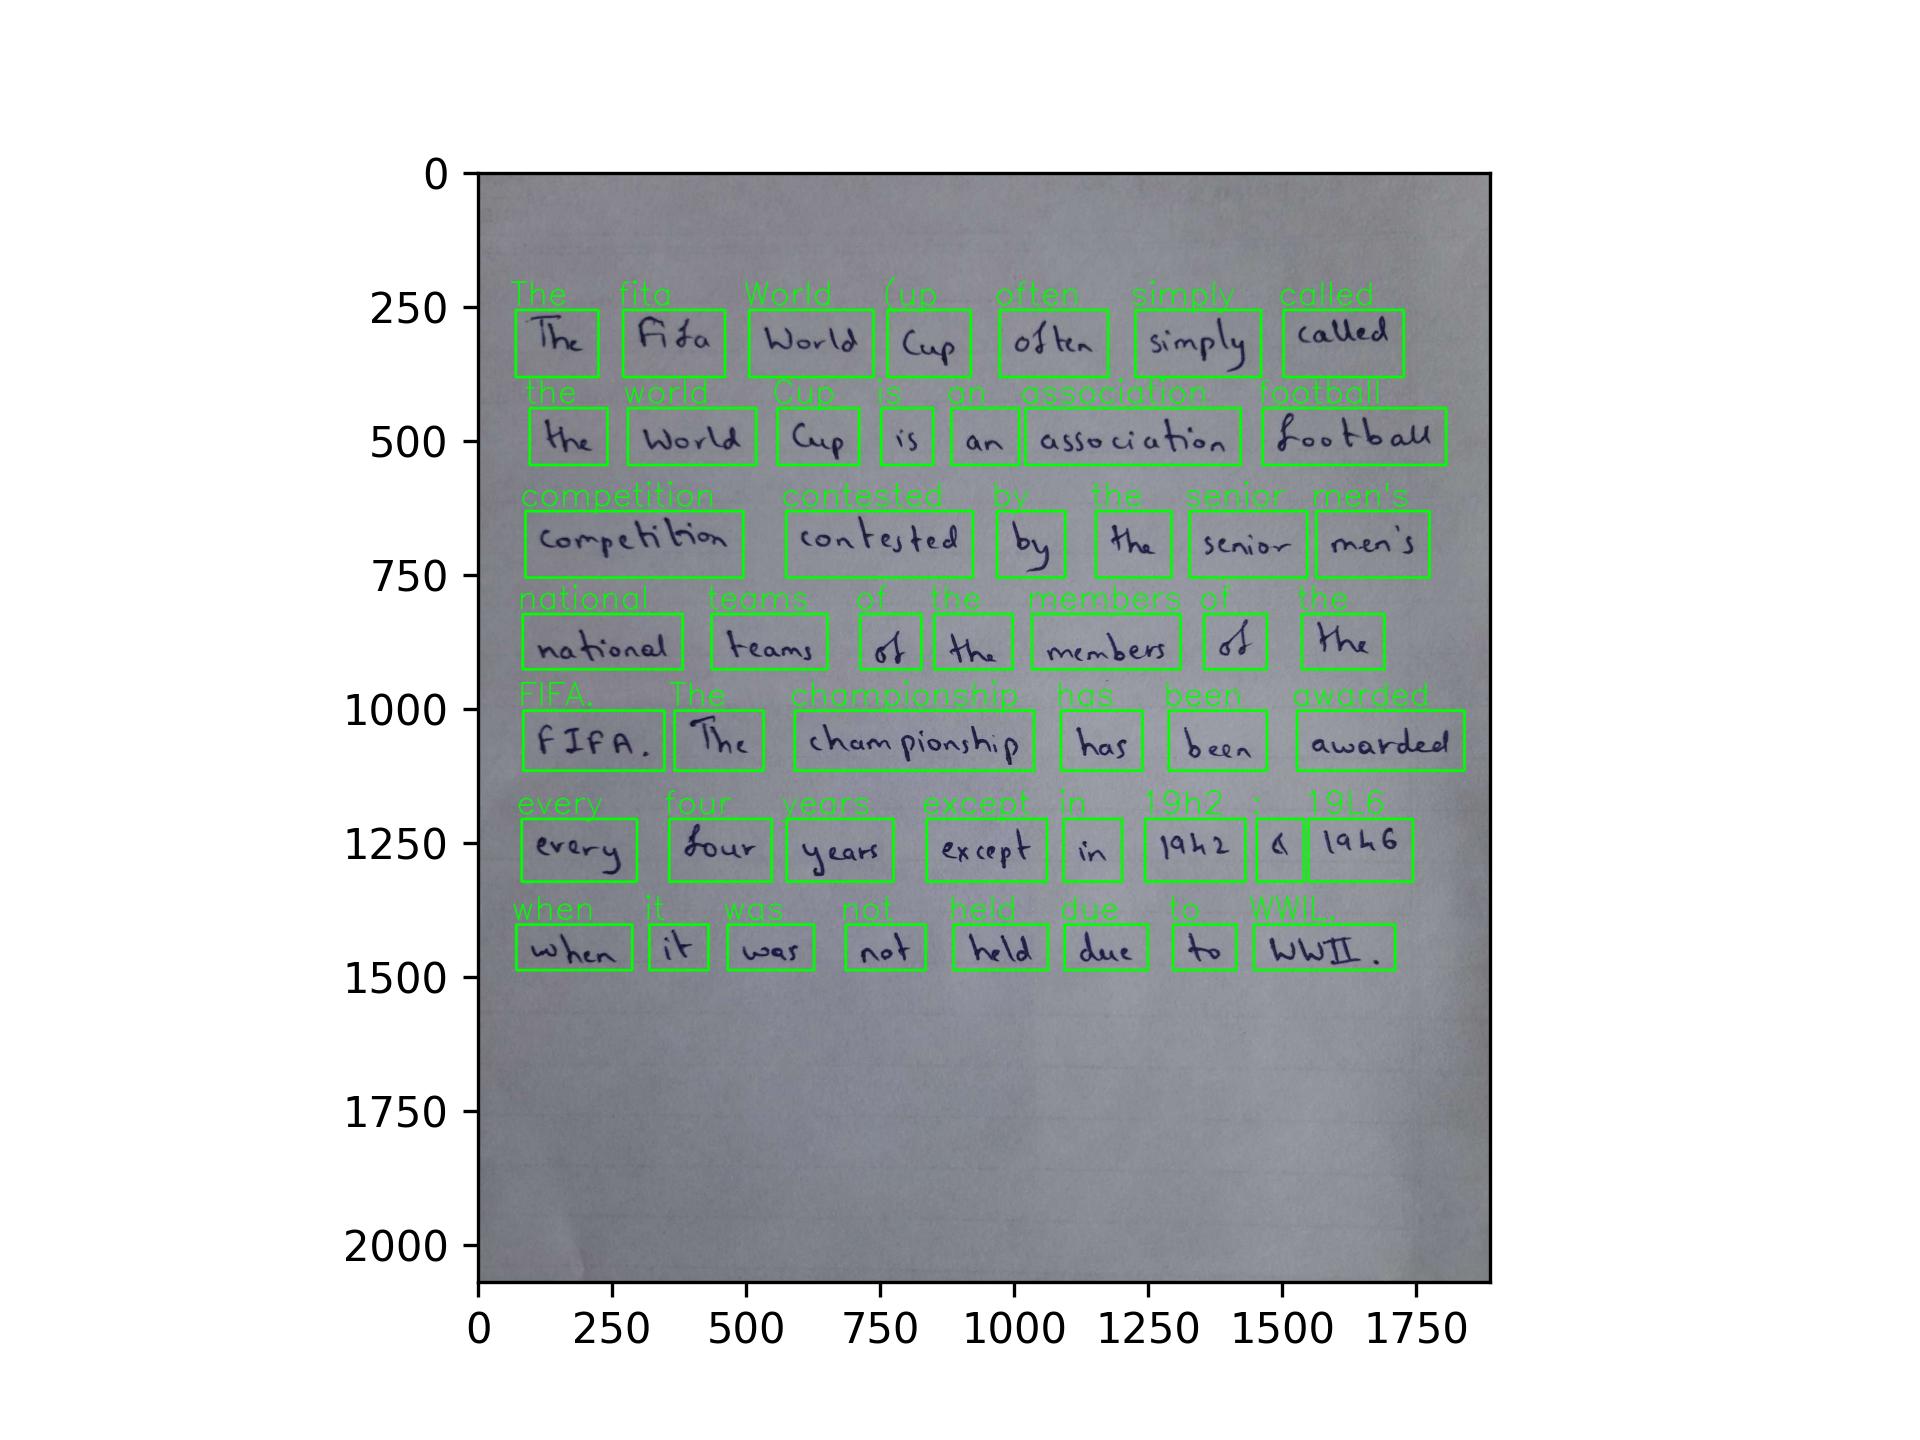 0
The fita World (up often simply called
250
The Fifa World Cup often simply called
the world Cup is an association football
500
the World Cup is an association football
competition contested by the senior men's
competition contested by the senior men's
750
national teams of the members of the
national teams of the members of the
FIFA. The championship has been awarded
1000
FIFA. The championship has been awarded
every four years except in 19h2 : 19L6
1250
every four years except in 1942 & 1946
when it was not held due to WWIL,
when it was not held due to WWII.
1500
1750
2000
0 250 500 750 1000 1250 1500 1750